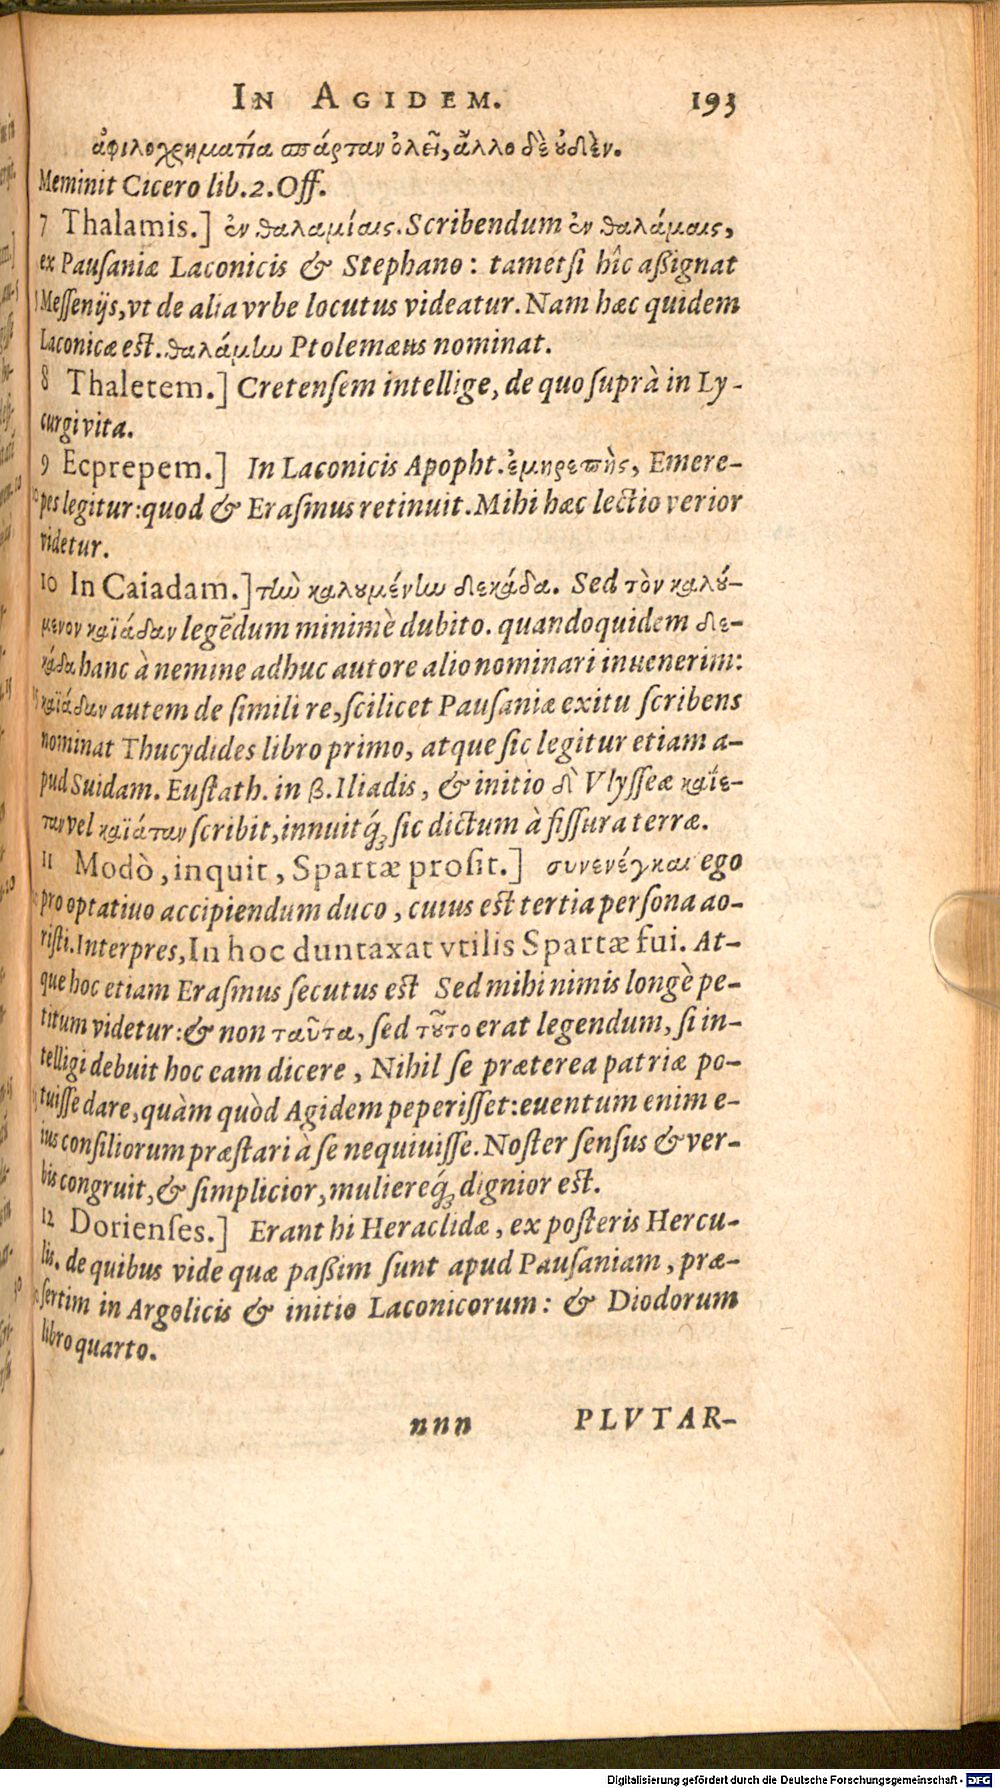 IN AGIDEM. 193
ἀφιλοχρηματία σπάρταν ὀλεῖ, ἄλλο δὲ οὐδὲν.
Meminit Cicero lib.2.Off.
7 Thalamis.] ἐν θαλαμίαις. Scribendum ἐν θαλάμαις,
ex Pauſaniæ Laconicis & Stephano: tametſi hîc aßignat
Meſſenijs, vt de alia vrbe locutus videatur. Nam hæc quidem
Laconicæ est. θαλάμην Ptolemæus nominat.
8 Thaletem.] Cretenſem intellige, de quo ſuprà in Ly-
curgi vita.
9 Ecprepem.] In Laconicis Apopht. ἐμηρεπὴς, Emere-
pes legitur: quod & Eraſmus retinuit. Mihi hæc lectio verior
videtur.
10 In Caiadam.] τὴν καλουμένην δεκάδα. Sed τὸν καλού-
μενον καϊάδαν legēdum minimè dubito. quandoquidem δε-
κάδα hanc à nemine adhuc autore alio nominari inuenerim:
καϊάδαν autem de ſimili re, ſcilicet Pauſaniæ exitu ſcribens
nominat Thucydides libro primo, atque ſic legitur etiam a-
pud Suidam. Euſtath. in β. Iliadis, & initio δ Vlyſſeæ καΐε-
ταν vel καϊάταν ſcribit, innuitq́; ſic dictum à fiſſura terræ.
11 Modò, inquit, Spartæ proſit.] συνενέγκαι ego
pro optatiuo accipiendum duco, cuius est tertia perſona ao-
riſti. Interpres, In hoc duntaxat vtilis Spartæ fui. At-
que hoc etiam Eraſmus ſecutus est Sed mihi nimis longè pe-
titum videtur: & non ταῦτα, ſed τοῦτο erat legendum, ſi in-
telligi debuit hoc eam dicere, Nihil ſe præterea patriæ po-
tuiſſe dare, quàm quòd Agidem peperiſſet: euentum enim e-
ius conſiliorum præſtari à ſe nequiuiſſe. Noſter ſenſus & ver-
bis congruit, & ſimplicior, muliereq́; dignior est.
12 Dorienſes.] Erant hi Heraclidæ, ex poſteris Hercu-
lis. de quibus vide quæ paßim ſunt apud Pauſaniam, præ-
ſertim in Argolicis & initio Laconicorum: & Diodorum
libro quarto.
nnn PLVTAR-
Digitalisierung gefördert durch die Deutsche Forschungsgemeinschaft - DFG